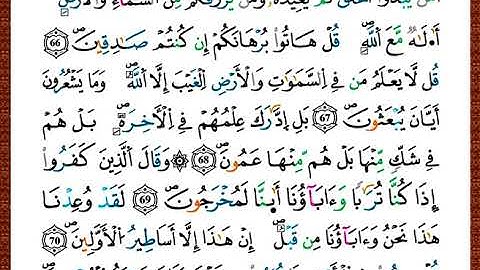 أَمَّن يَبْدَؤُا۟ ٱلْخَلْقَ ثُمَّ يُعِيدُهُۥ وَمَن يَرْزُقُكُم مِّنَ ٱلسَّمَآءِ وَٱلْأَرْضِ ۗ
أَءِلَٰهٌ مَّعَ ٱللَّهِ ۚ قُلْ هَاتُوا۟ بُرْهَانَكُمْ إِن كُنتُمْ صَادِقِينَ ۝٦٦
قُل لَّا يَعْلَمُ مَن فِي ٱلسَّمَاوَاتِ وَٱلْأَرْضِ ٱلْغَيْبَ إِلَّا ٱللَّهُ ۚ وَمَا يَشْعُرُونَ
أَيَّانَ يُبْعَثُونَ ۝٦٧ بَلِ ٱدَّارَكَ عِلْمُهُمْ فِي ٱلْأَخِرَةِ ۚ بَلْ هُمْ
فِي شَكٍّ مِّنْهَا بَلْ هُم مِّنْهَا عَمُونَ ۝٦٨ ۞ وَقَالَ ٱلَّذِينَ كَفَرُوا۟
إِذَا كُنَّا تُرَابًا وَءَابَآؤُنَا أَئِنَّا لَمُخْرَجُونَ ۝٦٩ لَقَدْ وُعِدْنَا
هَٰذَا نَحْنُ وَءَابَآؤُنَا مِن قَبْلُ إِنْ هَٰذَا إِلَّا أَسَاطِيرُ ٱلْأَوَّلِينَ ۝٧٠